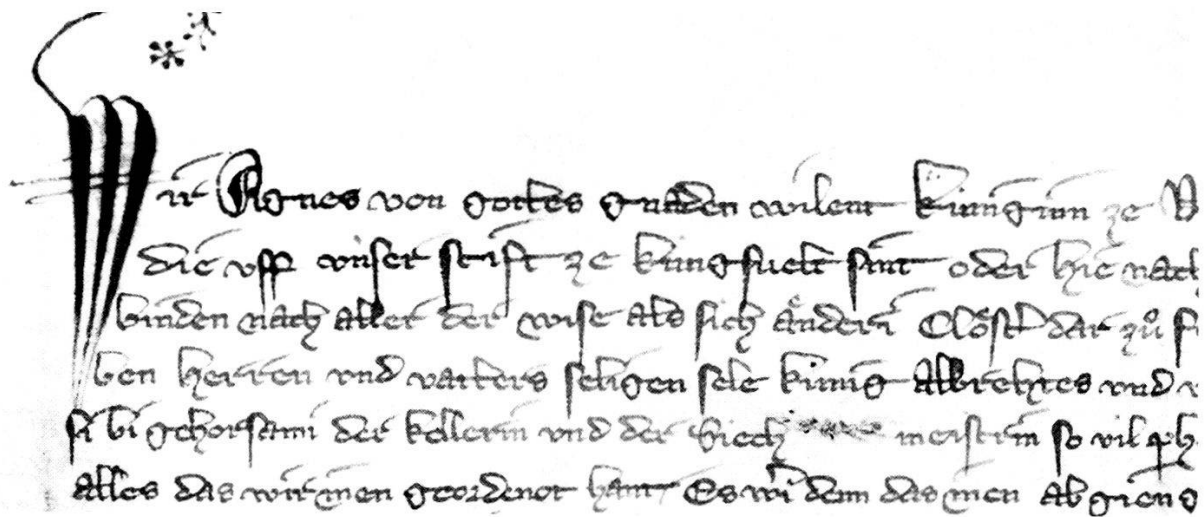 Wir Agnes von gottes gnaden wilent kúnginn ze
die vff vnser stift ze kúngsuelt sint oder hie nach
binden nach aller der wise als sich ander Clöster dar zů
ben herren vnd vatters seligen sele kúnig Albrehtes vnd
si bi gehorsami der kellerin vnd der Siech meistrin so vil
alles das wir inen geordenot hant Es wer denn das inen ab gieng